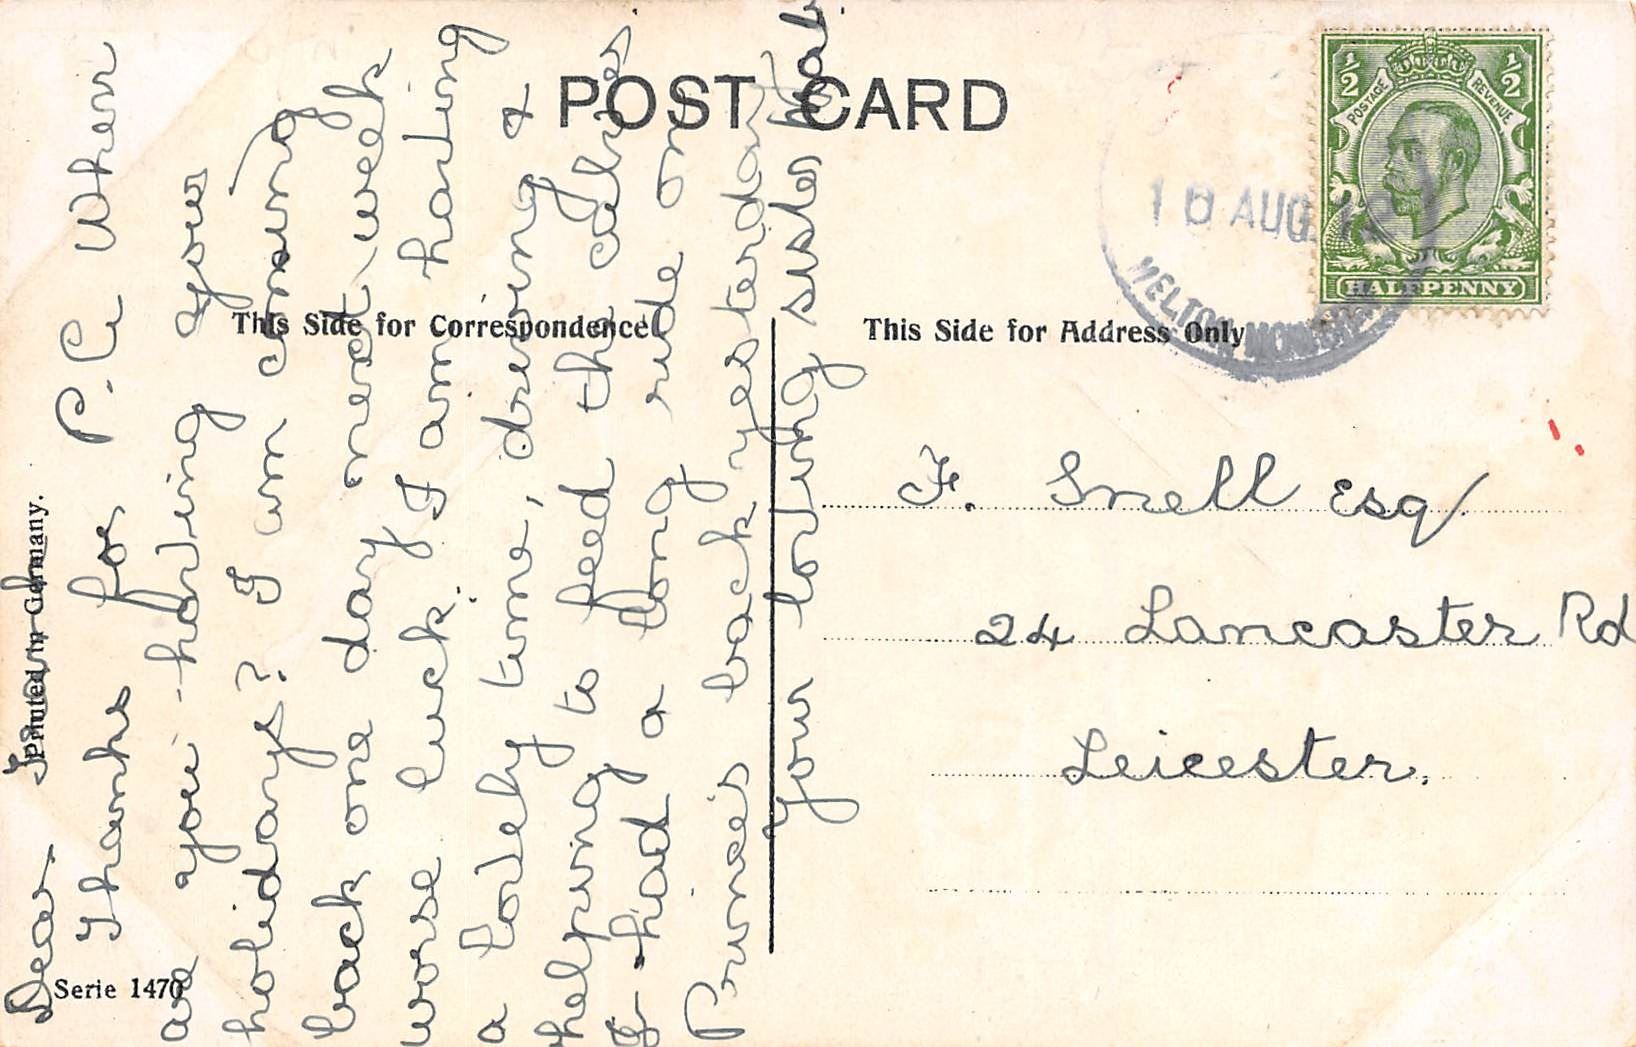 POST CARD
This Side for Correspondence
This Side for Address Only
Printed in Germany.
Serie 1470
½ ½
POSTAGE REVENUE
HALFPENNY
AUG
MELTON MOWBRAY
Dear
Thanks for P.C. When
are you having your
holidays? I am coming
back one day next week
worse luck. I am having
a lovely time, driving &
helping to feed the calves
I had a long ride on
Prince's back yesterday
Your loving sister
F. Snell Esq/
24 Lancaster Rd
Leicester.